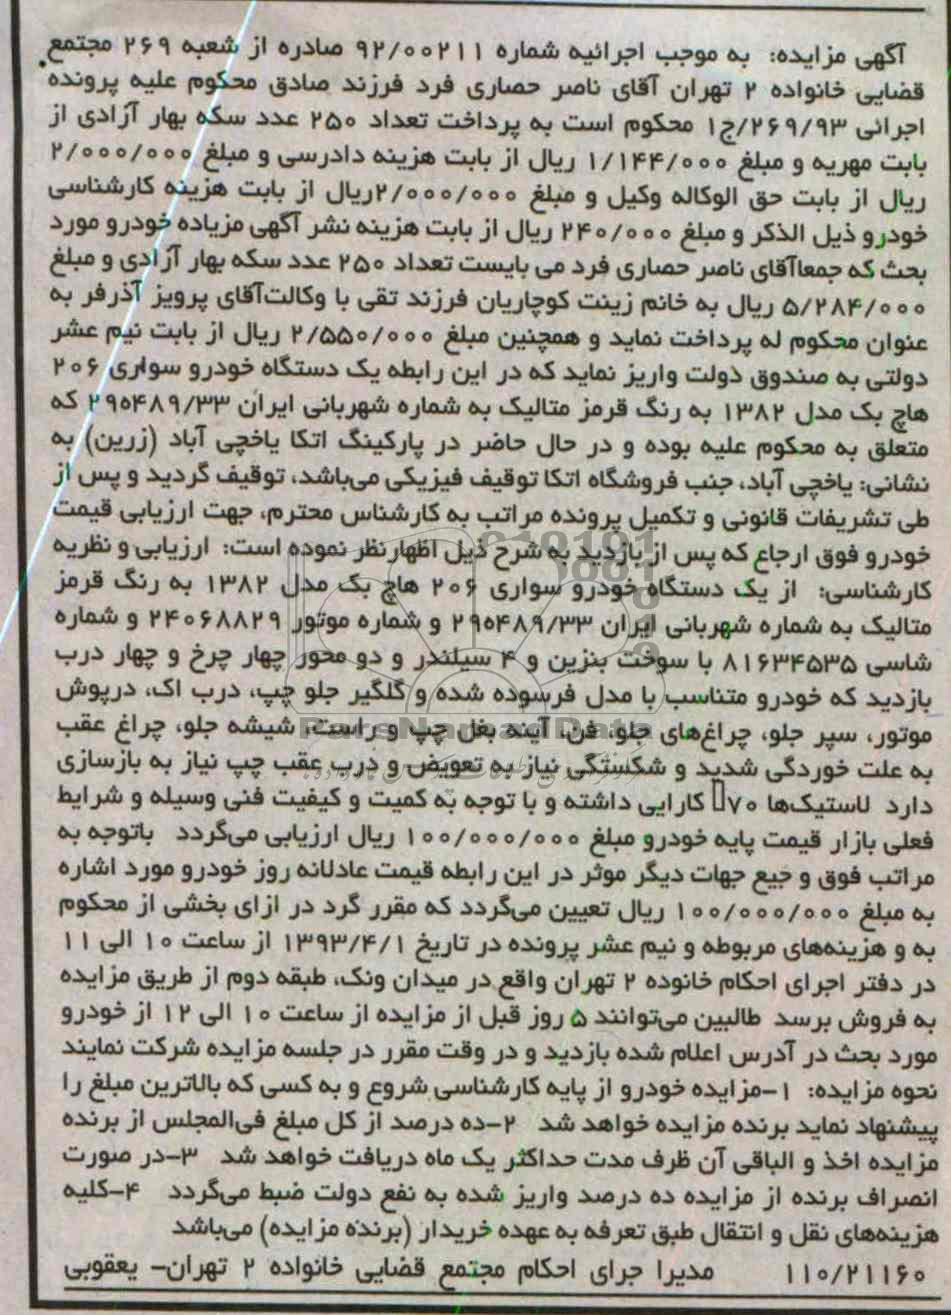 آگهی مزایده: به موجب اجرائیه شماره ۹۲/۰۰۲۱۱ صادره از شعبه ۲۶۹ مجتمع
قضایی خانواده ۲ تهران آقای ناصر حصاری فرد فرزند صادق محکوم علیه پرونده
اجرائی ۲۶۹/۹۳/ج۱ محکوم است به پرداخت تعداد ۲۵۰ عدد سکه بهار آزادی از
بابت مهریه و مبلغ ۱/۱۴۴/۰۰۰ ریال از بابت هزینه دادرسی و مبلغ ۲/۰۰۰/۰۰۰
ریال از بابت حق الوکاله وکیل و مبلغ ۲/۰۰۰/۰۰۰ریال از بابت هزینه کارشناسی
خودرو ذیل الذکر و مبلغ ۲۴۰/۰۰۰ ریال از بابت هزینه نشر آگهی مزیاده خودرو مورد
بحث که جمعاآقای ناصر حصاری فرد می بایست تعداد ۲۵۰ عدد سکه بهار آزادی و مبلغ
۵/۲۸۴/۰۰۰ ریال به خانم زینت کوچاریان فرزند تقی با وکالت‌آقای پرویز آذرفر به
عنوان محکوم له پرداخت نماید و همچنین مبلغ ۲/۵۵۰/۰۰۰ ریال از بابت نیم عشر
دولتی به صندوق دولت واریز نماید که در این رابطه یک دستگاه خودرو سواری ۲۰۶
هاچ بک مدل ۱۳۸۲ به رنگ قرمز متالیک به شماره شهربانی ایران ۲۹ه۴۸۹/۳۳ که
متعلق به محکوم علیه بوده و در حال حاضر در پارکینگ اتکا یاخچی آباد (زرین) به
نشانی: یاخچی آباد، جنب فروشگاه اتکا توقیف فیزیکی می‌باشد، توقیف گردید و پس از
طی تشریفات قانونی و تکمیل پرونده مراتب به کارشناس محترم، جهت ارزیابی قیمت
خودرو فوق ارجاع که پس از بازدید به شرح ذیل اظهارنظر نموده است: ارزیابی و نظریه
کارشناسی: از یک دستگاه خودرو سواری ۲۰۶ هاچ بک مدل ۱۳۸۲ به رنگ قرمز
متالیک به شماره شهربانی ایران ۲۹ه۴۸۹/۳۳ و شماره موتور ۲۴۰۶۸۸۲۹ و شماره
شاسی ۸۱۶۳۴۵۳۵ با سوخت بنزین و ۴ سیلندر و دو محور چهار چرخ و چهار درب
بازدید که خودرو متناسب با مدل فرسوده شده و گلگیر جلو چپ، درب اک، درپوش
موتور، سپر جلو، چراغ‌های جلو، فن، آینه بغل چپ و راست، شیشه جلو، چراغ عقب
به علت خوردگی شدید و شکستگی نیاز به تعویض و درب عقب چپ نیاز به بازسازی
دارد لاستیک‌ها ۷۰ کارایی داشته و با توجه به کمیت و کیفیت فنی وسیله و شرایط
فعلی بازار قیمت پایه خودرو مبلغ ۱۰۰/۰۰۰/۰۰۰ ریال ارزیابی می‌گردد باتوجه به
مراتب فوق و جیع جهات دیگر موثر در این رابطه قیمت عادلانه روز خودرو مورد اشاره
به مبلغ ۱۰۰/۰۰۰/۰۰۰ ریال تعیین می‌گردد که مقرر گرد در ازای بخشی از محکوم
به و هزینه‌های مربوطه و نیم عشر پرونده در تاریخ ۱۳۹۳/۴/۱ از ساعت ۱۰ الی ۱۱
در دفتر اجرای احکام خانوده ۲ تهران واقع در میدان ونک، طبقه دوم از طریق مزایده
به فروش برسد طالبین می‌توانند ۵ روز قبل از مزایده از ساعت ۱۰ الی ۱۲ از خودرو
مورد بحث در آدرس اعلام شده بازدید و در وقت مقرر در جلسه مزایده شرکت نمایند
نحوه مزایده: ۱-مزایده خودرو از پایه کارشناسی شروع و به کسی که بالاترین مبلغ را
پیشنهاد نماید برنده مزایده خواهد شد ۲-ده درصد از کل مبلغ فی‌المجلس از برنده
مزایده اخذ و الباقی آن ظرف مدت حداکثر یک ماه دریافت خواهد شد ۳-در صورت
انصراف برنده از مزایده ده درصد واریز شده به نفع دولت ضبط می‌گردد ۴-کلیه
هزینه‌های نقل و انتقال طبق تعرفه به عهده خریدار (برنده مزایده) می‌باشد
۱۱۰/۲۱۱۶۰ مدیرا جرای احکام مجتمع قضایی خانواده ۲ تهران- یعقوبی
ParsNamadData